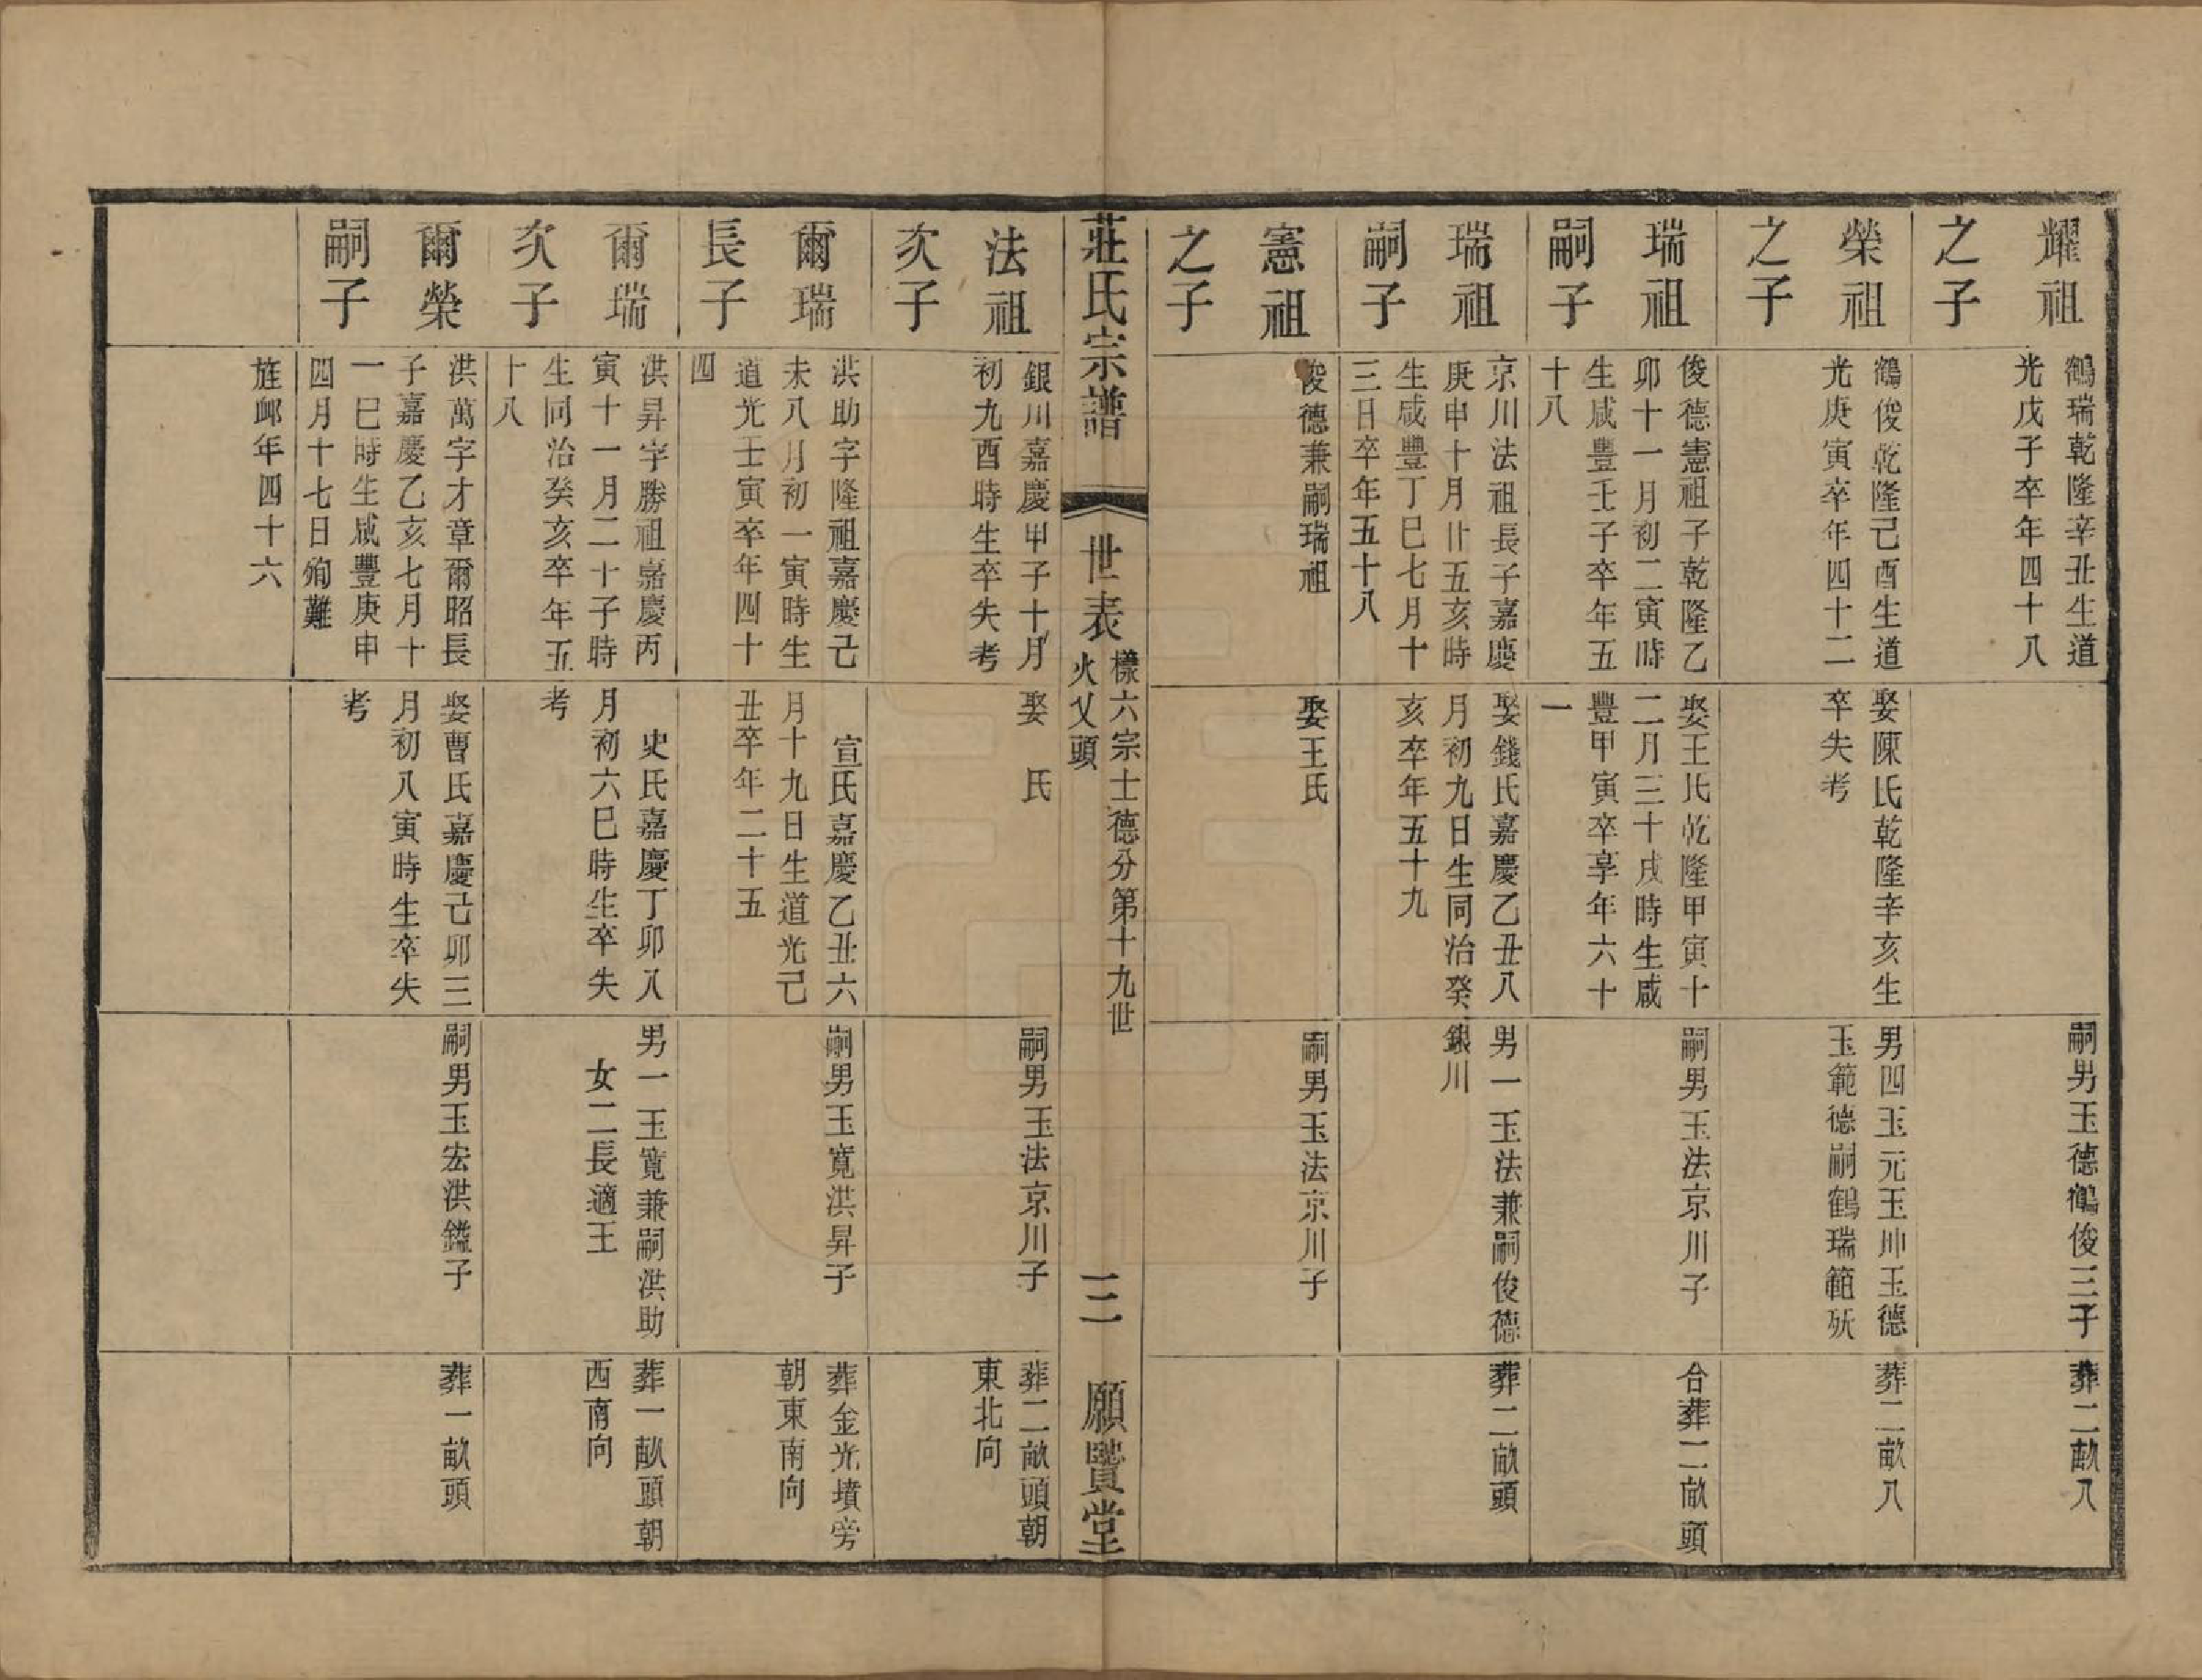 耀祖
之子
鶴瑞乾隆辛丑生道
光戊子卒年四十八
嗣男玉德鶴俊三子
葬二畝八
榮祖
之子
鶴俊乾隆己酉生道
光庚寅卒年四十二
娶陳氏乾隆辛亥生
卒失考
男四玉元玉帅玉德
玉範德嗣鶴瑞範殀
葬二畝八
瑞祖
嗣子
俊德憲祖子乾隆乙
卯十一月初二寅時
生咸豐壬子卒年五
十八
娶王氏乾隆甲寅十
二月三十戌時生咸
豐甲寅卒享年六十
一
嗣男玉法京川子
合葬二畝頭
瑞祖
嗣子
京川法祖長子嘉慶
庚申十月廿五亥時
生咸豐丁巳七月十
三日卒年五十八
娶錢氏嘉慶乙丑八
月初九日生同治癸
亥卒年五十九
男一玉法兼嗣俊德
銀川
葬二畝頭
憲祖
之子
俊德兼嗣瑞祖
娶王氏
嗣男玉法京川子
莊氏宗譜
世表
樣六宗士德分第十九世
火乂頭
三
願賢堂
法祖
次子
銀川嘉慶甲子十月
初九酉時生卒失考
娶 氏
嗣男玉法京川子
葬二畝頭朝
東北向
爾瑞
長子
洪助字隆祖嘉慶己
未八月初一寅時生
道光壬寅卒年四十
四
宣氏嘉慶乙丑六
月十九日生道光己
丑卒年二十五
嗣男玉寬洪昇子
葬金光墳旁
朝東南向
爾瑞
次子
洪昇字勝祖嘉慶丙
寅十一月二十子時
生同治癸亥卒年五
十八
史氏嘉慶丁卯八
月初六巳時生卒失
考
男一玉寬兼嗣洪助
女二長適王
葬一畝頭朝
西南向
爾榮
嗣子
洪萬字才章爾昭長
子嘉慶乙亥七月十
一巳時生咸豐庚申
四月十七日殉難
旌卹年四十六
娶曹氏嘉慶己卯三
月初八寅時生卒失
考
嗣男玉宏洪鎰子
葬一畝頭